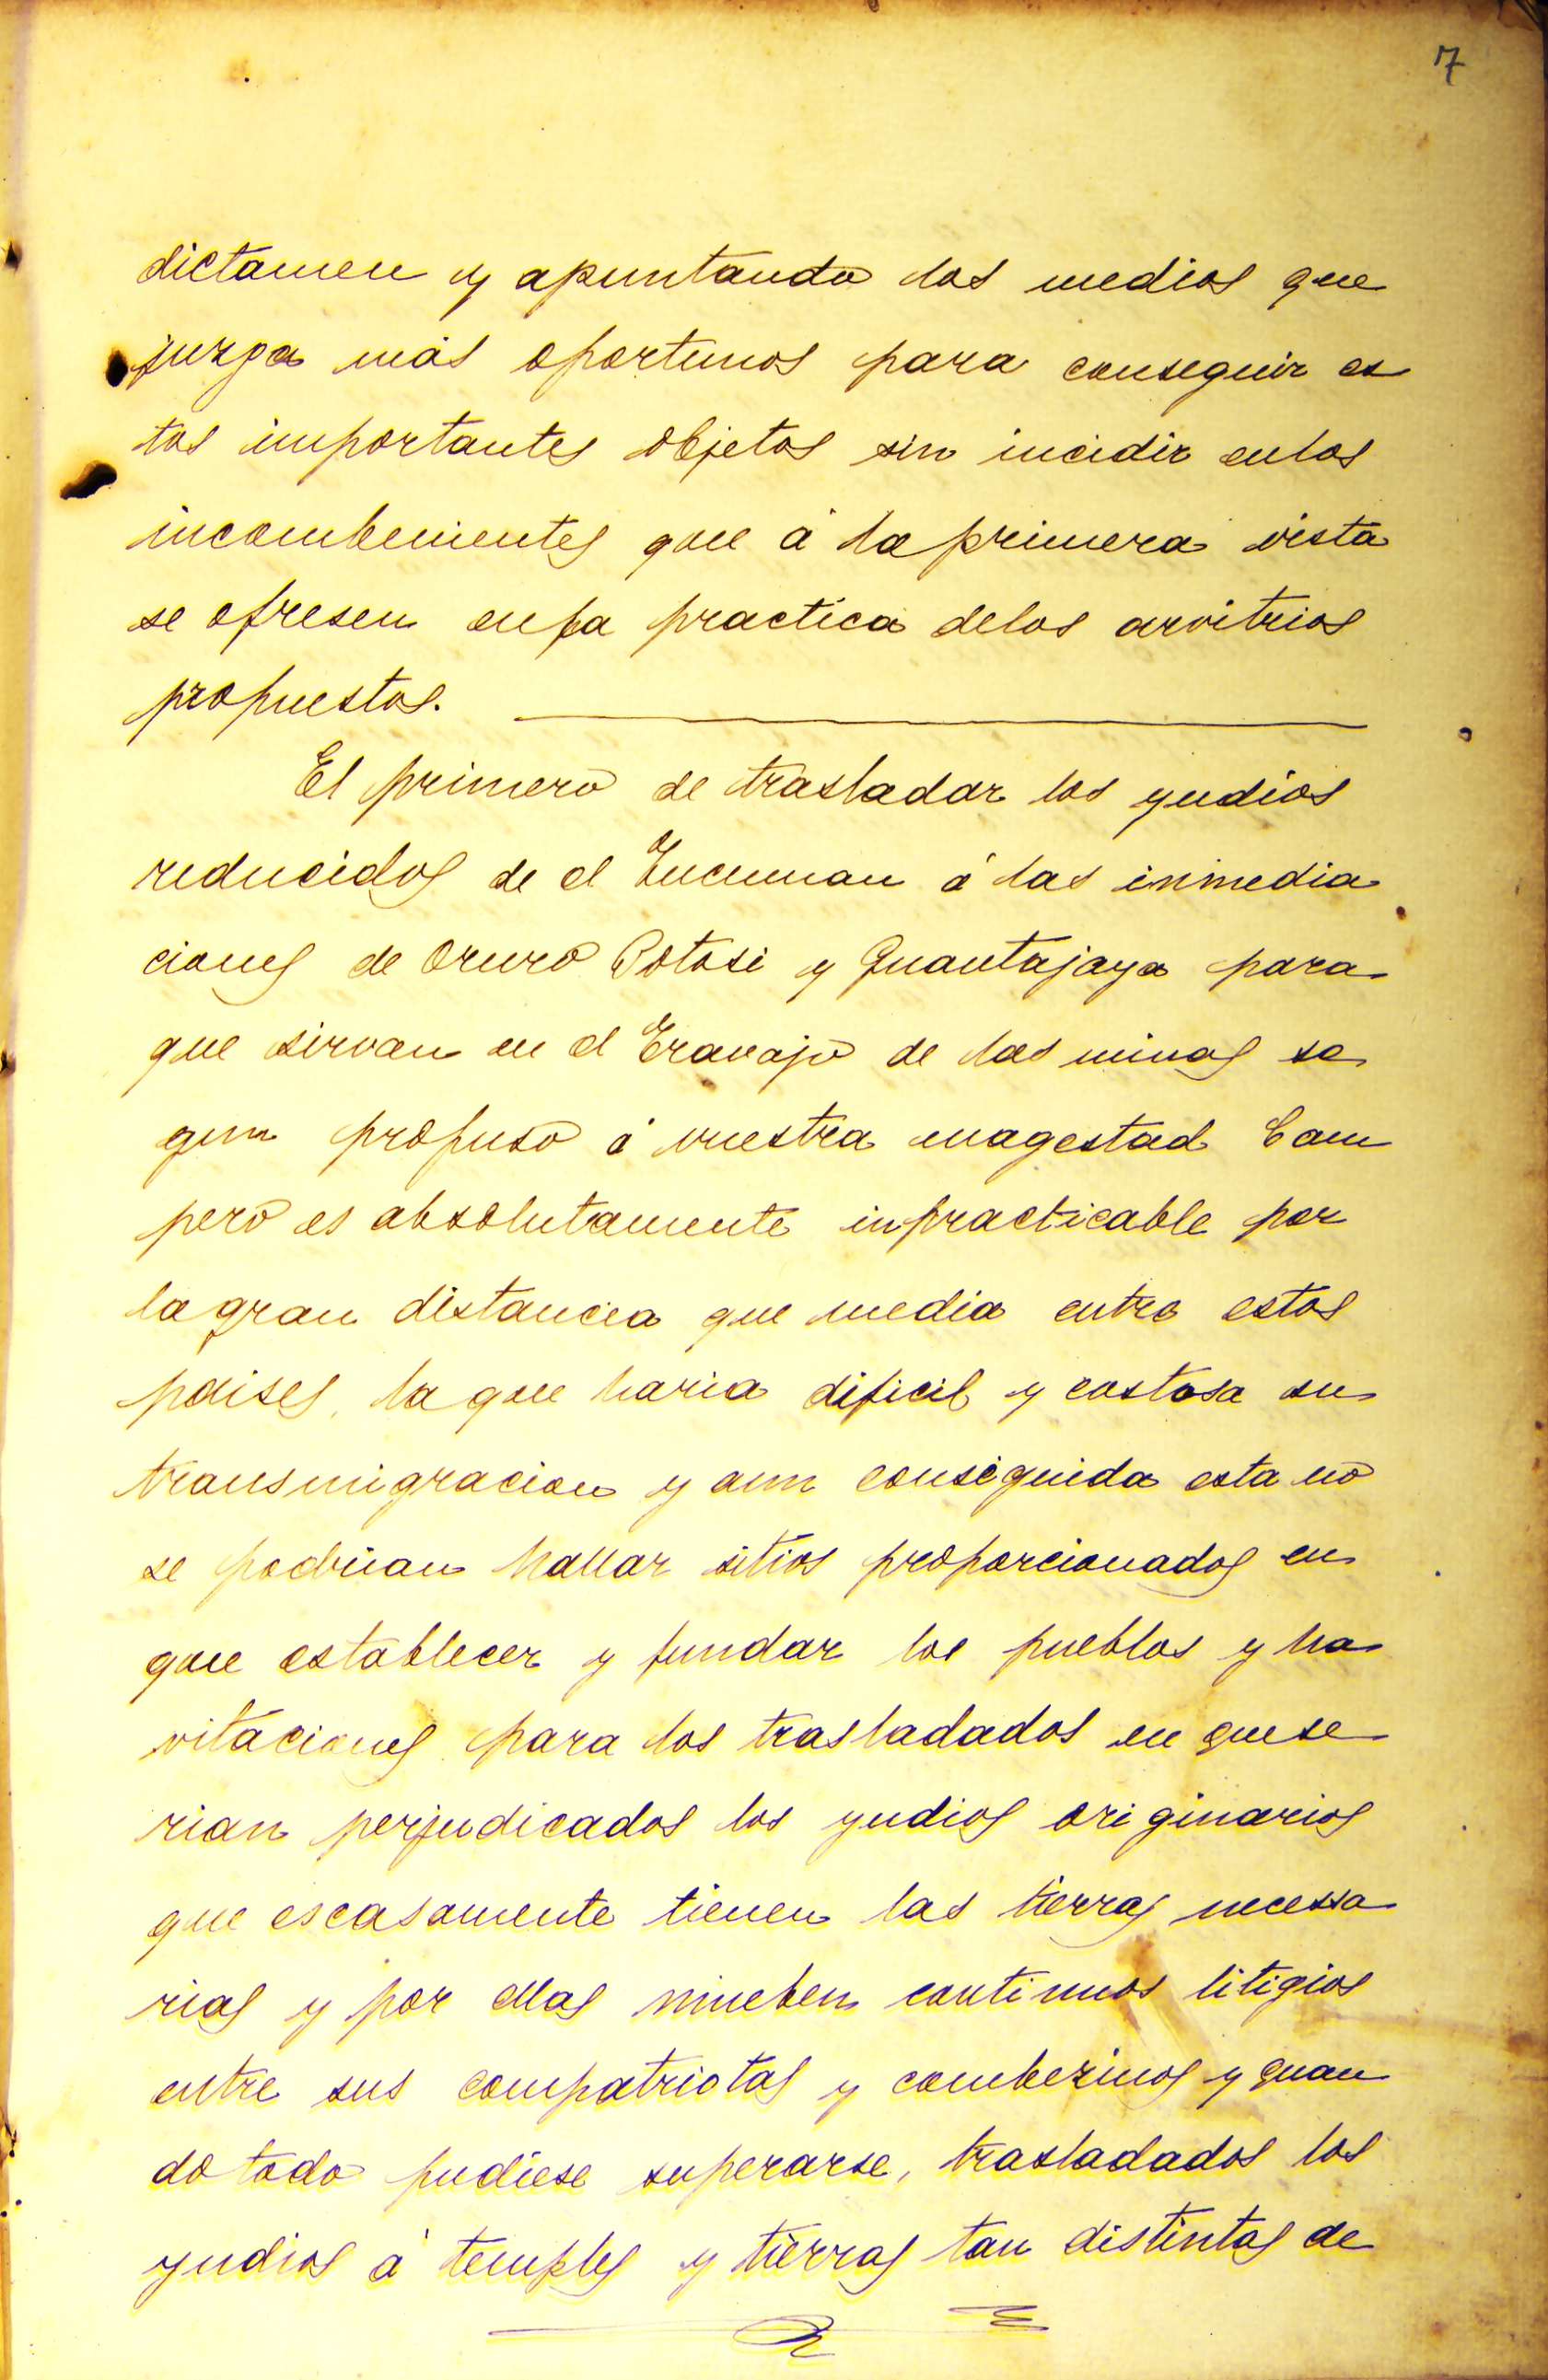 7
dictamen y apuntando los medios que
juzga más oportunos para conseguir es
tos importantes objetos sin incidir en los
incombenientes que á la primera vista
se ofresen en la practica delos arvitrios
propuestos.
El primero de trasladar los yndios
reducidos de el Tucuman á las inmedia
ciones de Oruro Potosi y Guantajaya para
que sirvan en el Travajo de las minas se
gun propuso á vuestra magestad Cam
pero es absolutamente inpracticable por
la gran distancia que media entre estos
paises, la que haria dificil y costosa su
transmigracion y aun conseguida esta no
se podrian hallar sitios proporcionados en
que establecer y fundar los pueblos y ha
vitaciones para los trasladados en que se
rian perjudicados los yndios originarios
que escasamente tienen las tierras necessa
rias y por ellas mueben continuos litigios
entre sus compatriotas y combezinos y quan
do todo pudiese superarse, trasladados los
yndios á temples y tierras tan distintas de